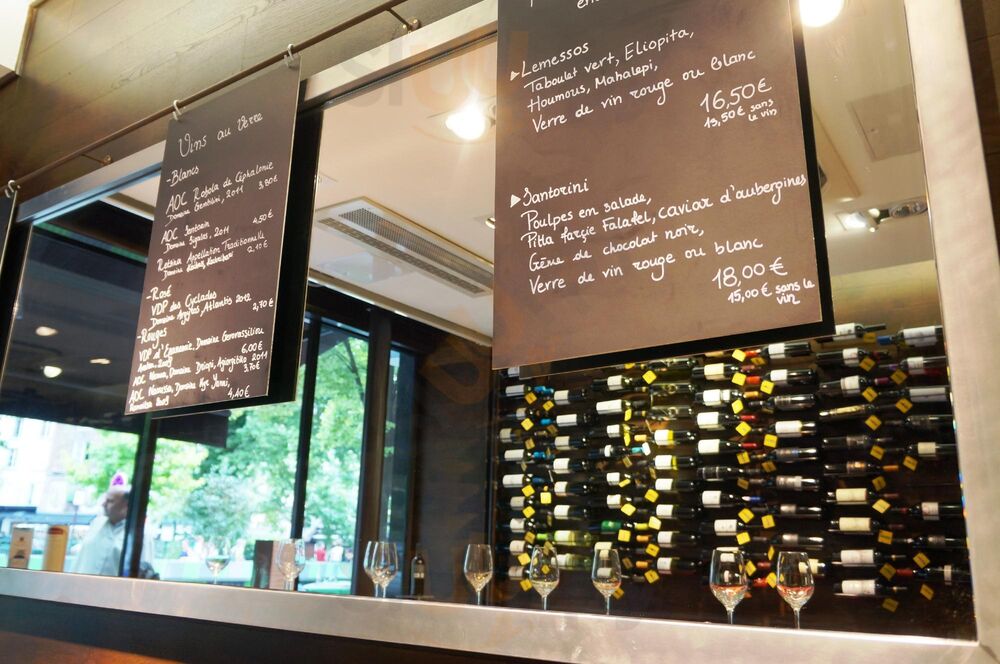 Vins au Verre
-Blancs
AOC Robola de Céphalonie
Domaine Gentilini, 2011 3,80€
AOC Santorin 4,50€
Domaine Sigalas, 2011
Retsina Appellation Traditionnelle
Domaine 2,10€
-Rosé
VDP des Cyclades
Domaine Argyros, Atlantis 2012 2,70€
-Rouges
VDP d'Epanomie, Domaine Gerovassiliou
6,00€
AOC Némea, Domaine Driopi, Agiorgitiko 2011
3,70€
AOC Naoussa, Domaine Kyr Yanni,
4,40€
▸Lemessos
Taboulet vert, Eliopita,
Houmous, Mahalepi,
Verre de vin rouge ou blanc
16,50€
15,50€ sans
le vin
▸Santorini
Poulpes en salade,
Pitta farçie Falafel, caviar d'aubergines
Crème de chocolat noir,
Verre de vin rouge ou blanc
18,00€
15,00€ sans le
vin